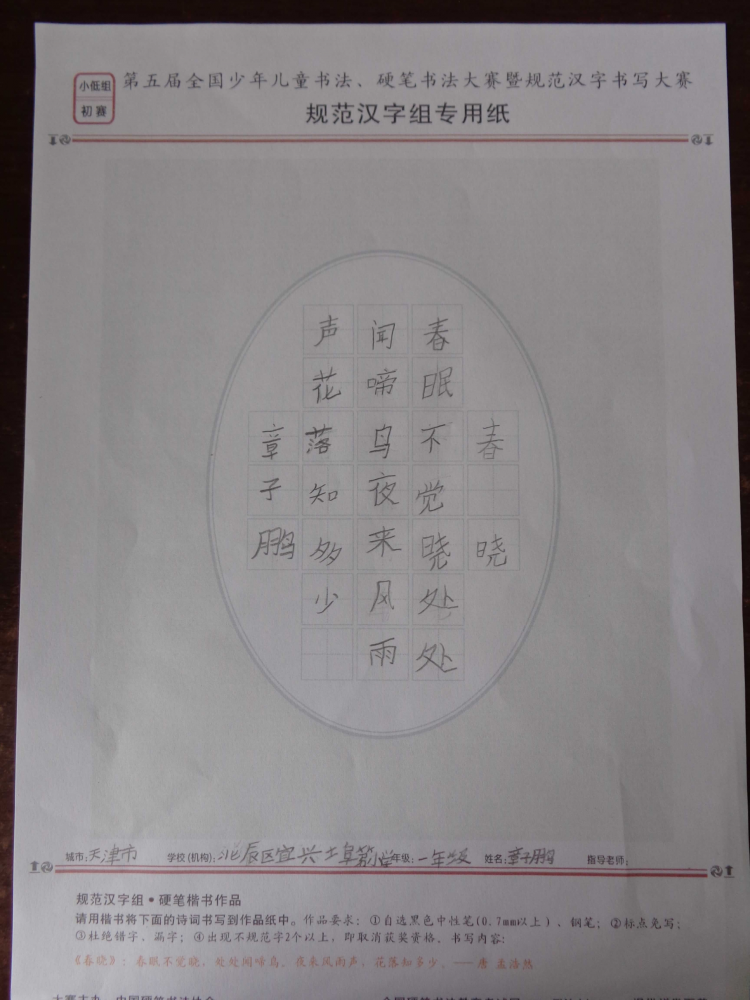 小低组
初赛
第五届全国少年儿童书法、硬笔书法大赛暨规范汉字书写大赛
规范汉字组专用纸
春晓
春眠不觉晓处处
闻啼鸟夜来风雨
声花落知多少
章子鹏
城市:天津市 学校(机构):北辰区宜兴埠 小学 年级:一年级 姓名:章子鹏 指导老师:
规范汉字组·硬笔楷书作品
请用楷书将下面的诗词书写到作品纸中。作品要求：①自选黑色中性笔(0.7mm以上)、钢笔；②标点免写；
③杜绝错字、漏字；④出现不规范字2个以上，即取消获奖资格。书写内容：
《春晓》：春眠不觉晓，处处闻啼鸟。夜来风雨声，花落知多少。——唐 孟浩然
大赛主办：中国硬笔书法协会